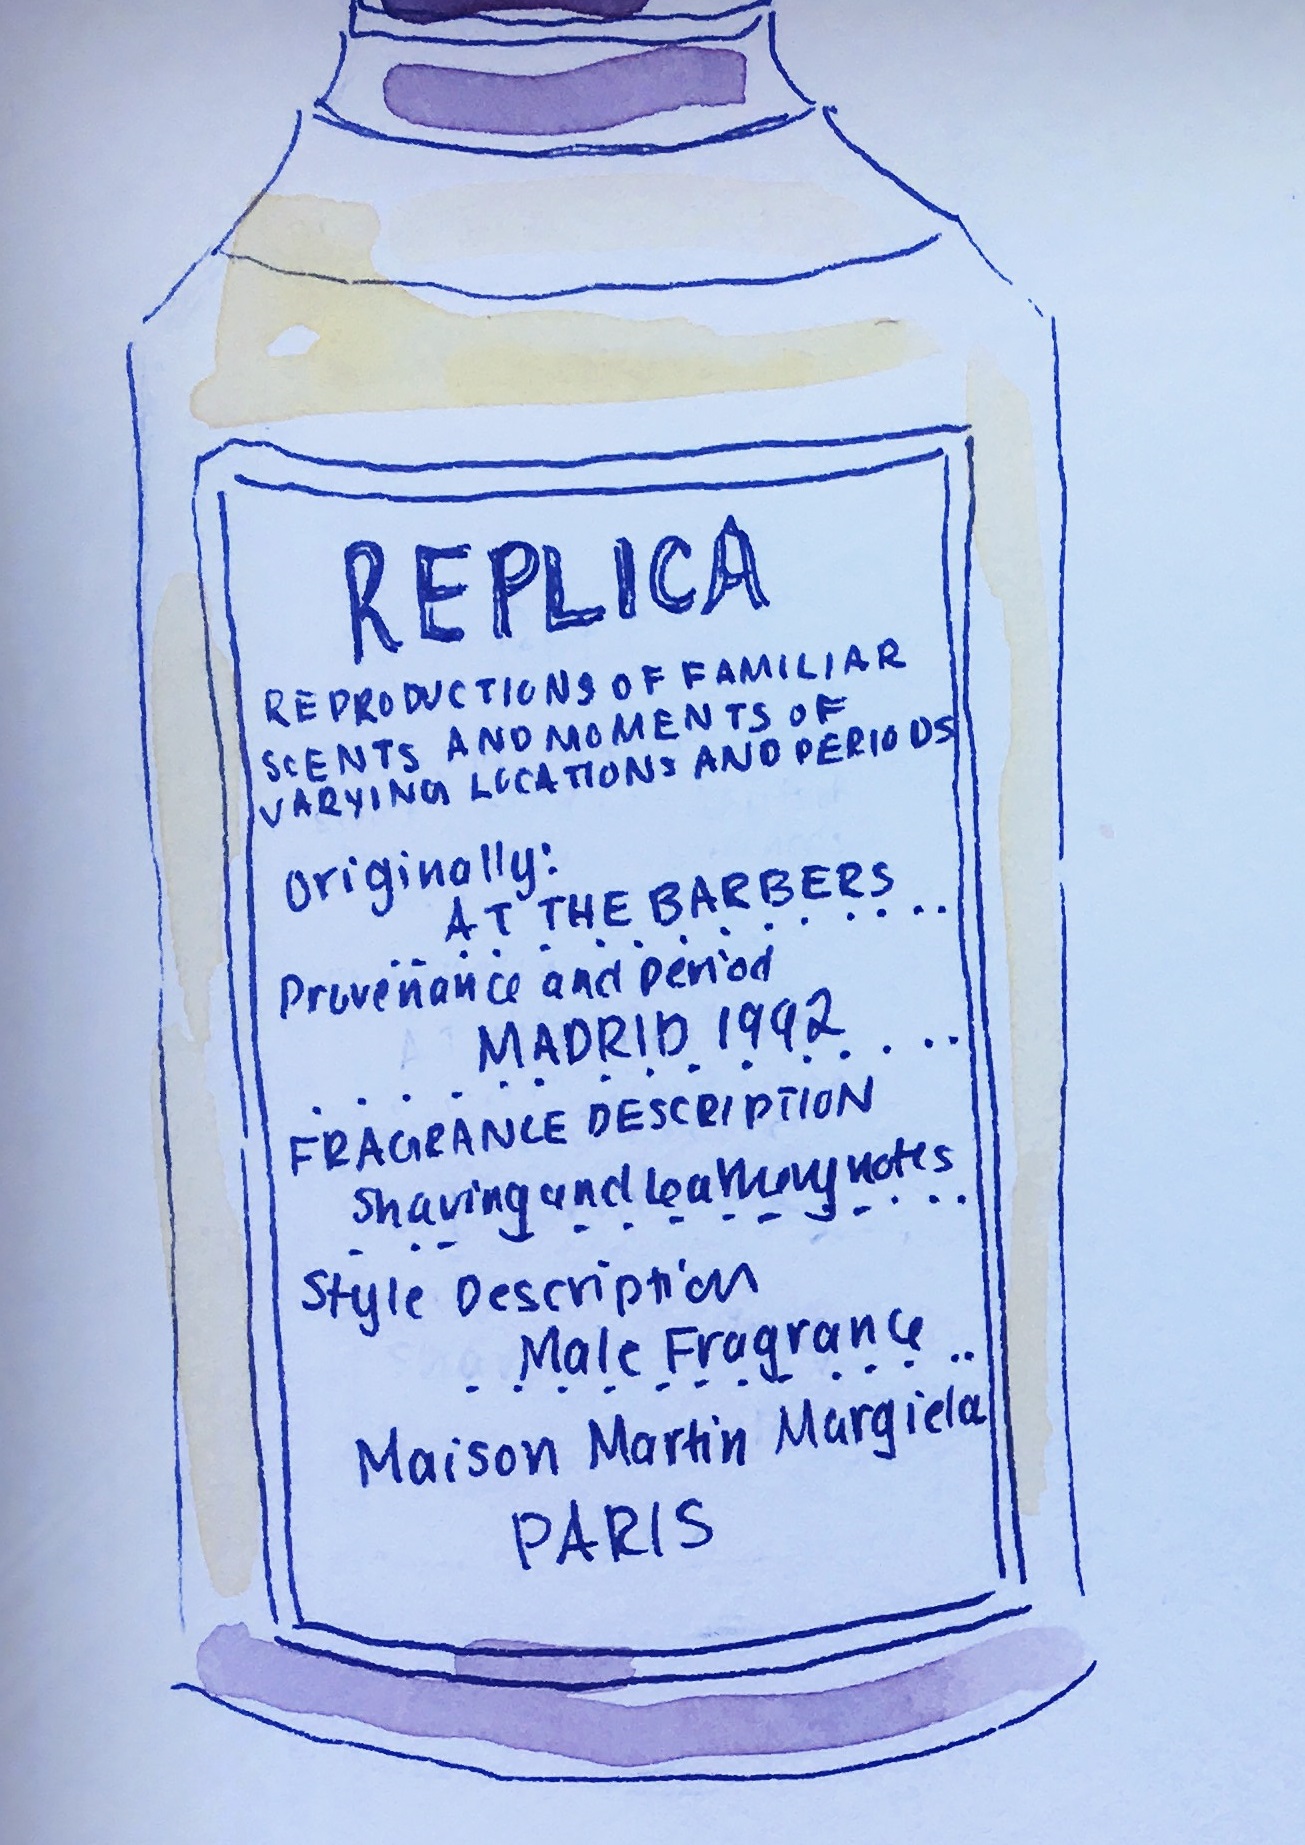 REPLICA
REPRODUCTIONS OF FAMILIAR
SCENTS AND MOMENTS OF
VARYING LOCATIONS AND PERIODS
Originally:
AT THE BARBERS
Provenance and period
MADRID 1992
FRAGRANCE DESCRIPTION
Shaving and leathery notes
Style Description
Male Fragrance
Maison Martin Margiela
PARIS